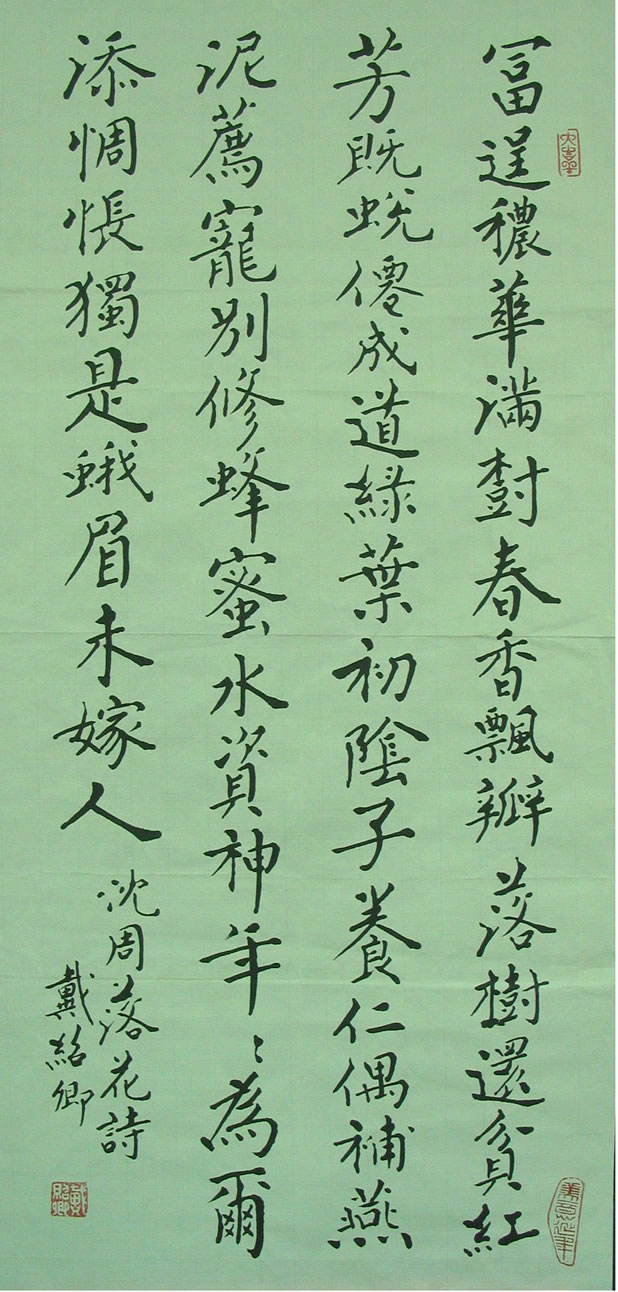 冨逞穠華滿樹春香飄瓣落樹還貧紅
芳既蛻僊成道綠葉初陰子養仁偶補燕
泥薦寵別修蜂蜜水資神年〻為爾
添惆悵獨是蛾眉未嫁人
沈周落花詩
戴紹卿
戴紹卿